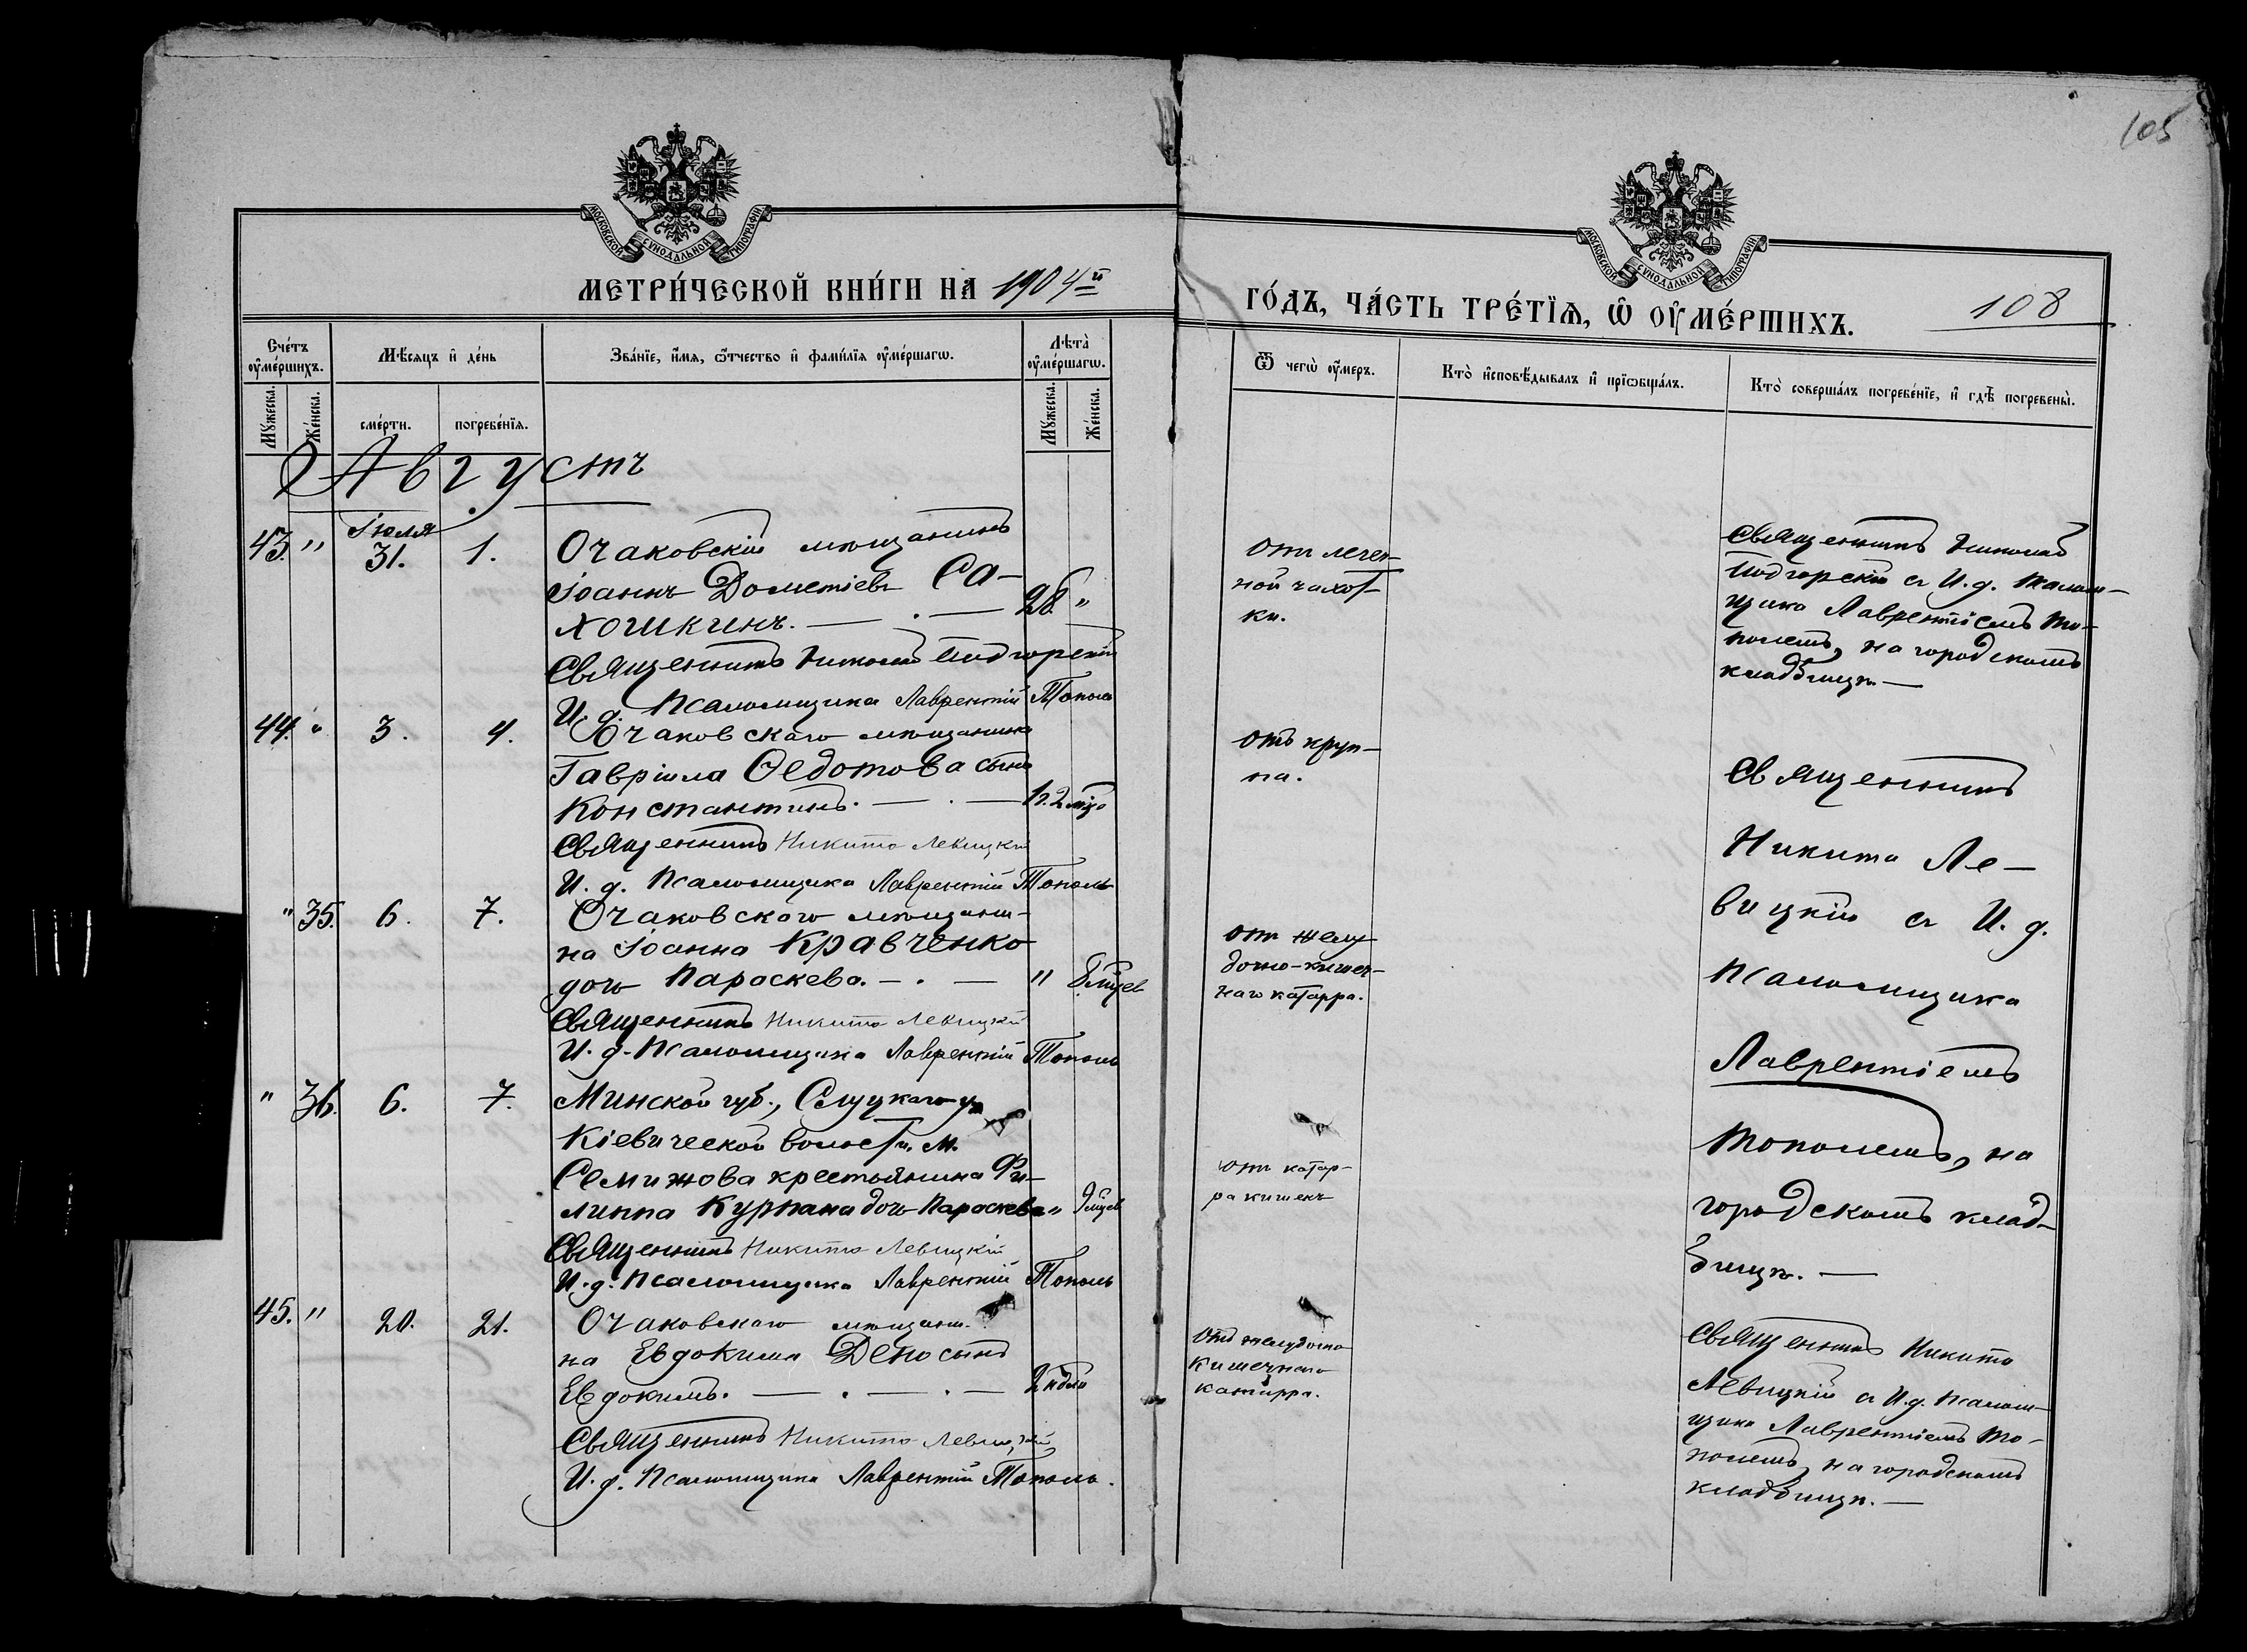 105
МОСКОВСКОЙ СУНОДАЛЬНОЙ ТИПОГРАФІИ
МОСКОВСКОЙ СУНОДАЛЬНОЙ ТИПОГРАФІИ
МЕТРИ́ЧЕСКОЙ КНИ́ГИ НА 1904й
ГО́ДЪ, ЧА́СТЬ ТРЕ́ТІѦ, Ѡ ОУ҆МЕ́РШИХЪ.
108
Сче́тъ оу҆ме́ршихъ.
Мѣ́сяцъ и҆ де́нь
Зва́нїе, и҆́мя, ѻ҆́тчество и҆ фами́лїя оу҆ме́ршагѡ.
Лѣта̀ оу҆ме́ршагѡ.
Ѿ чегѡ̀ оу҆́меръ.
Кто̀ и҆сповѣ́дывалъ и҆ прїѡбща́лъ.
Кто̀ соверша́лъ погребе́нїе, и҆ гдѣ̀ погребены̀.
Мꙋ́жеска.
Же́нска.
сме́рти.
погребе́нїя.
Мꙋ́жеска.
Же́нска.
Августъ
43. " Іюля 31. 1. Очаковскій мѣщанинъ
Іоаннъ Дометіевъ Са-
хошкинъ. — . — 28. "
Священникъ Николай Подгорскій
И. д. Псаломщика Лаврентій Тополь
отъ легоч-
ной чахот-
ки.
Священникъ Николай
Подгорскій съ И. д. Псалом-
щика Лаврентіемъ То-
полемъ, на городскомъ
кладбищѣ. —
44. " 3. 4. Очаковскаго мѣщанина
Гавріила Федотова сынъ
Константинъ. — . — 1 г. 2 мѣс
Священникъ Никита Левицкій
И. д. Псаломщика Лаврентій Тополь
отъ круп-
па.
Священникъ
Никита Ле-
вицкій съ И. д.
Псаломщика
Лаврентіемъ
Тополемъ, на
городскомъ клад-
бищѣ. —
" 35. 6. 7. Очаковскаго мѣщани-
на Іоанна Кравченко
дочь Параскева. — . — "
Священникъ Никита Левицкій
И. д. Псаломщика Лаврентій Тополь
отъ желу-
дочно-кишеч-
наго катарра.
" 36. 6. 7. Минской губ., Слуцкаго у.
Кіевической волости, м.
Семижова крестьянина Фи-
липпа Курпана дочь Параскева "
Священникъ Никита Левицкій
И. д. Псаломщика Лаврентій Тополь
отъ катар-
ра кишекъ
45. " 20. 21. Очаковскаго мѣщани-
на Евдокима Дено сынъ
Евдокимъ. — . — . — 2 ндѣл
Священникъ Никита Левицкій
И. д. Псаломщика Лаврентій Тополь.
отъ желудочно
кишечнаго
катарра.
Священникъ Никита
Левицкій съ И. д. Псалом-
щика Лаврентіемъ То-
полемъ, на городскомъ
кладбищѣ. —